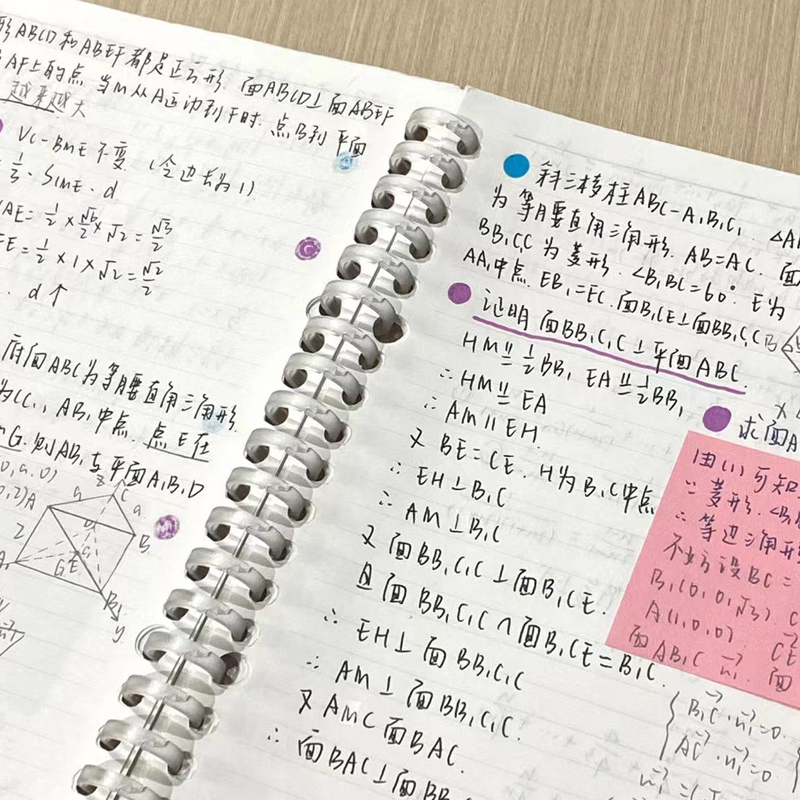 形ABCD和ABEF都是正方形. 面ABCD⊥面ABEF
AF上的点. 当M从A运动到F时. 点B到平面
越来越大
VC-BME不变 (令边长为1)
1/3·S△ME·d
AE=1/2×√6/2×√2=√3/2
E=1/2×1×√2=√2/2
d↑
底面ABC为等腰直角三角形.
为CC₁, AB₁中点. 点E在
G. 则AB₁与平面A₁B₁D
0,a,0)
0,2)A
z
C
a
a
B
2
G
E
B₁
y
斜三棱柱ABC-A₁B₁C₁
为等腰直角三角形. AB=AC. 面
BB₁C₁C为菱形. ∠B₁BC=60°. E为
AA₁中点. EB₁=EC. 面B₁CE⊥面BB₁C₁C
B
证明面BB₁C₁C⊥平面ABC.
HM∥=1/2BB₁ EA∥=1/2BB₁
∴HM∥=EA
∴AM∥EH.
又BE=CE. H为B₁C中点
∴EH⊥B₁C
∴AM⊥B₁C
又面BB₁C₁C⊥面B₁CE.
且面BB₁C₁C∩面B₁CE=B₁C.
∴EH⊥面BB₁C₁C
∴AM⊥面BB₁C₁C.
又AM⊂面BAC.
∴面BAC⊥面BB
求面A
由(1)可知
∵菱形. ∠B₁B
∴等边三角形
不妨设BC=
B₁(0,0,√3) C
A(1,0,0) CE
面AB₁C n₁ 面
B₁C·n₁=0.
AC·n₁=0
n₁=(